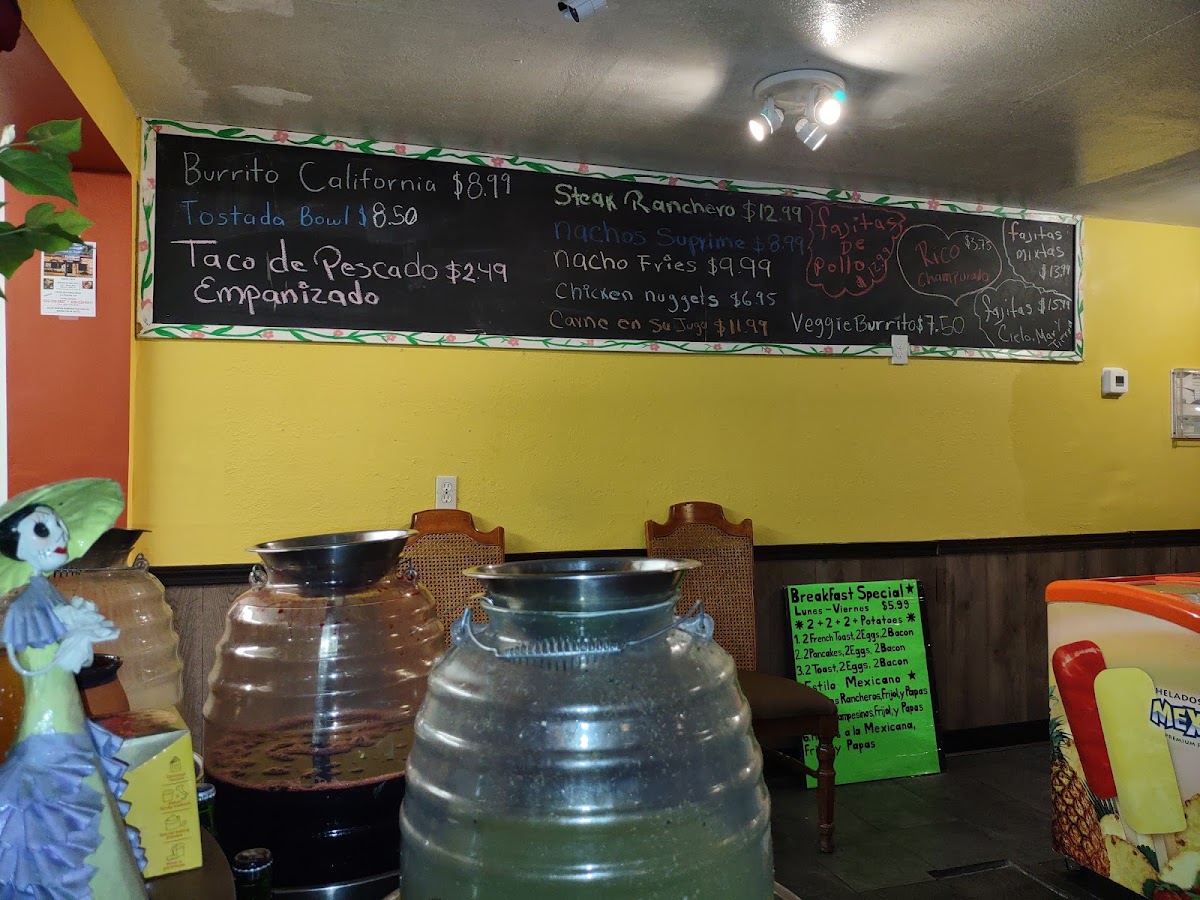 Burrito California $8.99
Tostada Bowl $8.50
Taco de Pescado $2.49
Empanizado
Steak Ranchero $12.99
nachos Suprime $8.99
nacho Fries $9.99
Chicken nuggets $6.95
Carne en Su Jugo $11.99
fajitas
De
Pollo
$12.99
Rico $3.75
Champurado
fajitas
mixtas
$13.99
Veggie Burrito $7.50
fajitas $15.99
Cielo, Mar y
Tierra
Breakfast Special
Lunes - Viernes $5.99
* 2 + 2 + 2 + Potatoes *
1. 2 French Toast, 2 Eggs, 2 Bacon
2. 2 Pancakes, 2 Eggs, 2 Bacon
3. 2 Toast, 2 Eggs, 2 Bacon
Estilo Mexicano
Rancheros, Frijol, y Papas
Frijol, y Papas
a la Mexicana,
y Papas
HELADOS
MEX
PREMIUM